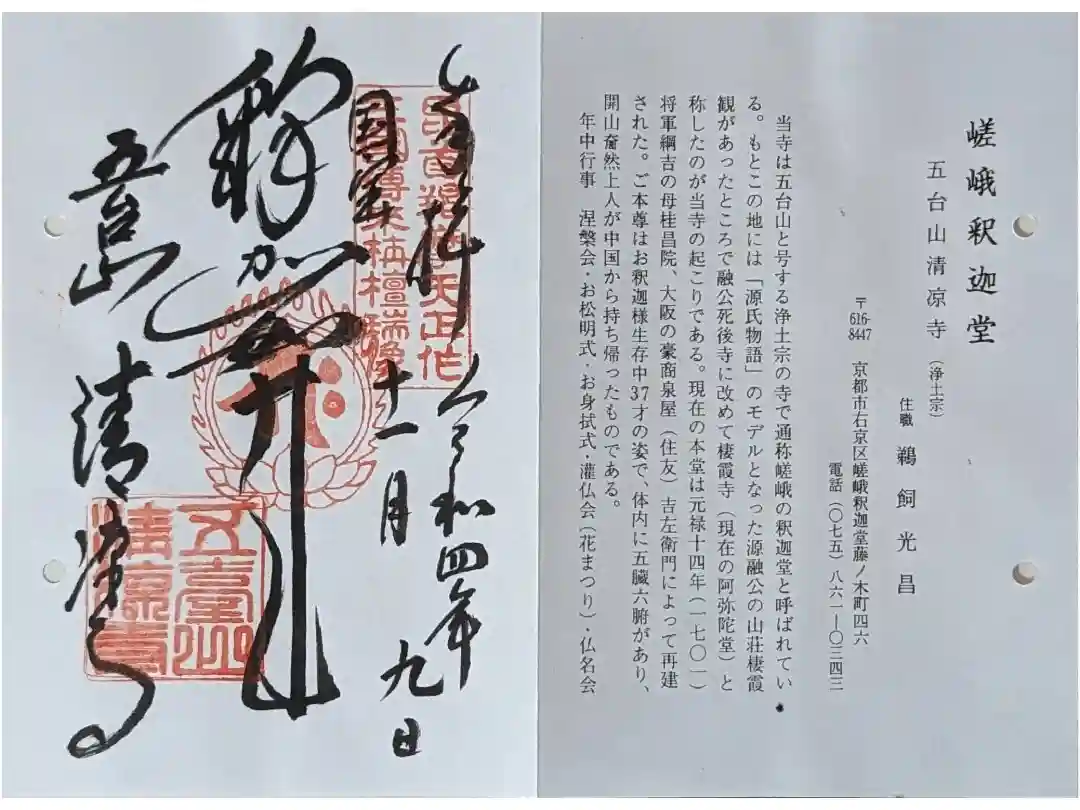 嵯峨釈迦堂
五台山清凉寺(浄土宗)
住職 鵜飼光昌
〒616-8447 京都市右京区嵯峨釈迦堂藤ノ木町四六
電話(〇七五)八六一―〇三四三
当寺は五台山と号する浄土宗の寺で通称嵯峨の釈迦堂と呼ばれてい
る。もとこの地には「源氏物語」のモデルとなった源融公の山荘棲霞
観があったところで融公死後寺に改めて棲霞寺(現在の阿弥陀堂)と
称したのが当寺の起こりである。現在の本堂は元禄十四年(一七〇一)
将軍綱吉の母桂昌院、大阪の豪商泉屋(住友)吉左衛門によって再建
された。ご本尊はお釈迦様生存中37才の姿で、体内に五臓六腑があり、
開山奝然上人が中国から持ち帰ったものである。
年中行事 涅槃会・お松明式・お身拭式・灌仏会(花まつり)・仏名会
奉拝 令和四年
国宝 十一月九日
毘首羯摩天正作
三国傳来栴檀瑞像
釋迦
五台山 清凉寺
五臺山
清凉寺